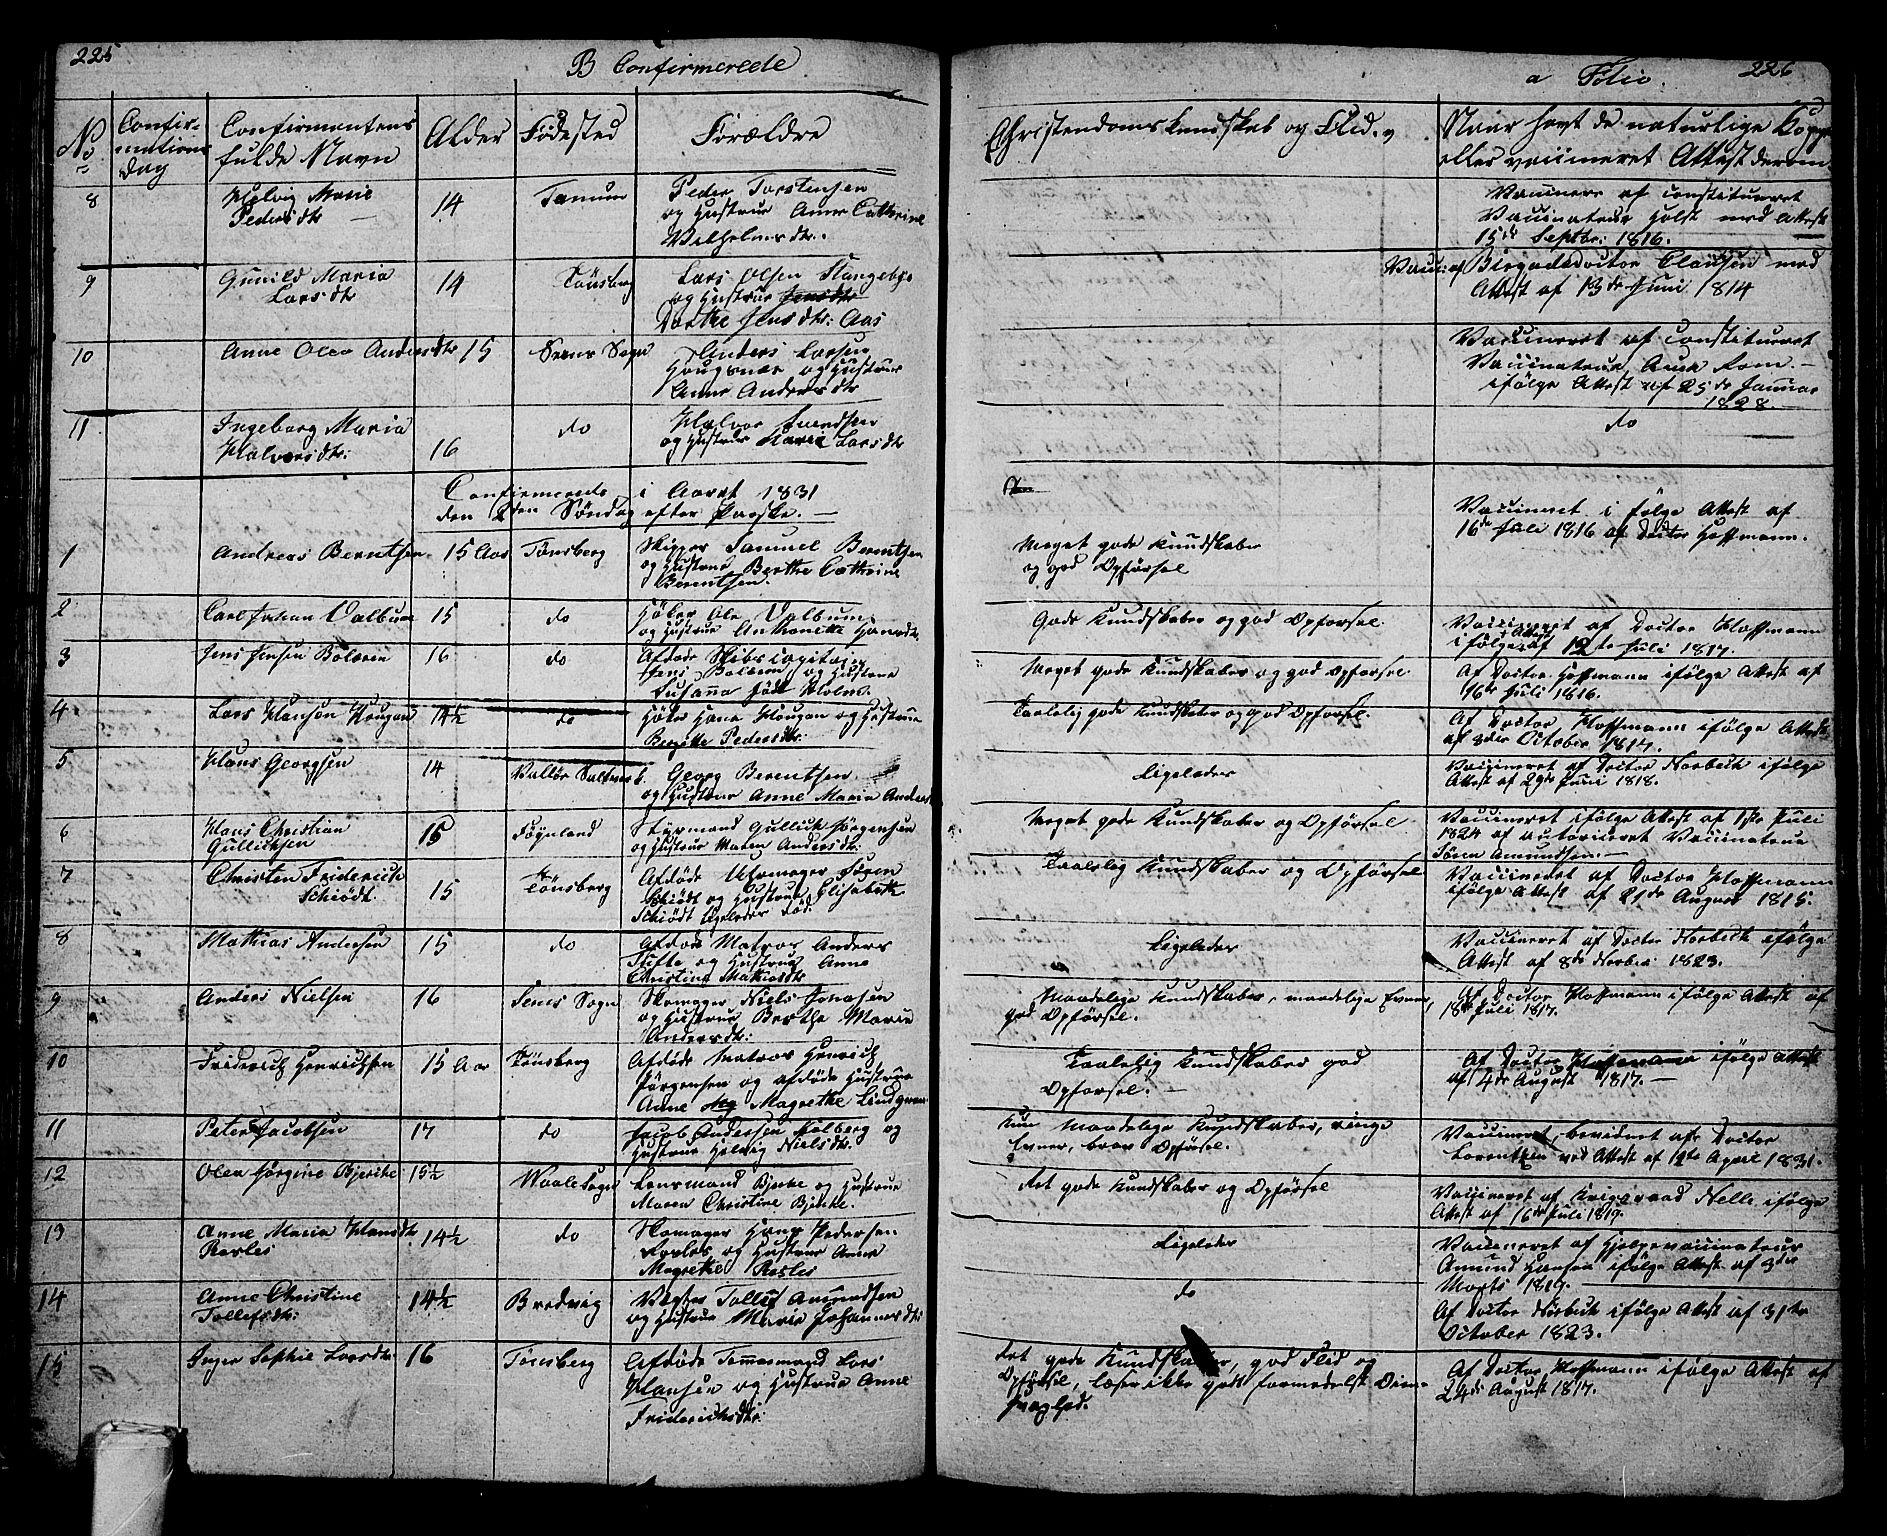 225
B Confirmerede
No
Confir-
mations
Dag
Confirmantens
fulde Navn
Alder
Födested
Forældre
8
Helvig Marie
Pedersdtr
14
Tanum
Peder Torstensen
og Hustrue Anne Cathrine
Vilhelmsdtr.
9
Gunild Maria
Larsdtr
14
Tönsberg
Lars Olsen
og Hustrue Jensdtr
Dorthe Jensdtr: Aas
10
Anne Olea Andersdtr
15
Sems Sogn
Anders Larsen
Hougsnæs og Hustrue
Anne Andersdtr
11
Ingeborg Maria
Halvorsdtr:
16
do
Halvor Svendsen
og Hustrue Marie Larsdtr
Confirmerede i Aaret 1831
den 2den Söndag efter Paaske. —
1
Andreas Berntsen
15 Aar
Tønsberg
Skipper Samuel Berntsen
og Hustrue Berthe Cathrine
Berentsen.
2
Carl Johan Valbum
15
do
Höker Ole Valbum
og Hustrue Anthonette Hansdtr
3
Jens Jensen Bolæren
16
do
Afdöde Skibscapitain
Jens Bolæren og Hustrue
Susanna föd Holm.
4
Lars Hansen Hougan
14½
do
Höker Hans Hougan og Hustrue
Birgitte Pedersdtr:
5
Hans Georgsen
14
Vallöe Saltverk
Georg Berentsen
og Hustrue Anne Maria Anders
6
Hans Christian
Gullichsen
15
Föynland
Styrmand Gullich Jörgensen
og Hustrue Maren Andersdtr:
7
Christen Friderich
Schiödt.
15
Tönsberg
Afdöde Uhrmager Sören
Schiödt og Hustrue Elisabeth
Schiödt ligeledes död.
8
Mathias Andersen
15
do
Afdöde Matros Anders
Tufte og Hustrue Anne
Christine Mathiasdtr
9
Anders Nielsen
16
Sems Sogn
Skomager Niels Jonasen
og Hustrue Berthe Marie
Andersdtr:
10
Friderich Henrichsen
15 Aar
Tönsberg
Afdöde Matros Henrich
Jörgensen og afdöde Hustrue
Anne Mag Magrethe Lindgreen
11
Peter Jacobsen
17
do
Jacob Andersen Kolberg og
Hustrue Helvig Nielsdtr.
12
Olea Jörgine Bjerke
15½
Waale Sogn
Lensmand Bjerke og Hustrue
Maren Christine Bjerke.
13
Anne Maria Hansdtr
Røsles
14½
do
Skomager Hans Pedersen
Røsles og Hustrue Anne
Magrethe Røsles
14
Anne Christine
Tollefsdtr:
14½
Bredvig
Tollef Amundsen
og Hustrue Marie Johannesdtr:
15
Inger Sophie Larsdtr.
16
Tönsberg
Afdöde Tömmermand Lars
Hansen og Hustrue Anne
Friderichsdtr:
226
a Folio.
Christendoms Kundskab og Flid.
Naar havt de naturlige Kopper
eller vaccineret Attest derom.
Vaccineret af constitueret
Vaccinateur Holst med Attest
15de Septbr: 1816.
Vacc: af Brigadedoctor Clausen med
Attest af 13de Juni 1814
Vaccineret af constitueret
Vaccinateur
ifölge Attest af 25de Januar
1828. —
do
Vaccineret i fölge Attest af
16de Juli 1816 af Doctor Hoffmann.
Meget gode Kundskaber
og god Opförsel
Gode Kundskaber og god Opförsel
Vaccineret af Doctor Hoffmann
ifölge Attest af 12te Juli 1817.
Meget gode Kundskaber og god Opförsel
Af Doctor Hoffmann ifölge Attest af
16de Juli 1816.
Taalelig gode Kundskaber og god Opförsel.
Af Doctor Hoffmann ifölge Attest
af 3der October 1817.
Ligeledes
Vaccineret af Doctor Norbech ifölge
Attest af 29de Juni 1818.
Meget gode Kundskaber og Opförsel
Vaccineret ifölge Attest af 1ste Juli
1824 af autoriseret Vaccinateur
Sören Amundsen. —
Taalelig Kundskaber og Opförsel
Vaccineret af Doctor Hoffmann
ifölge Attest af 21de August 1815.
Ligeledes
Vaccineret af Doctor Norbech ifölge
Attest af 8de Novbr: 1823.
Maadelige Kundskaber, maadelige Evner,
god Opförsel.
Af Doctor Hoffmann ifölge Attest af
18de Juli 1817.
Taalelig Kundskaber god
Opförsel. —
Af Doctor Hoffmann ifölge Attest
af 4de August 1817. —
Kun maadelige Kundskaber, ringe
Evner, brav Opförsel.
Vaccineret, bevidnet af Doctor
Lorentzen ved Attest af 12te April 1831.
Ret gode Kundskaber og Opförsel
Vaccineret af Krigsraad Nelle ifölge
Attest af 16de Juli 1819.
Ligeledes
Vaccineret af Hjelpevaccinateur
Amund Hansen ifölge Attest af 3die
Marts 1819.
do
Af Doctor Norbech ifölge Attest af 31te
October 1823.
Ret gode Kundskaber, god Flid og
Opförsel, læser ikke godt formedelst Øien-
svaghed.
Af Doctor Hoffmann ifölge Attest af
24de August 1817.